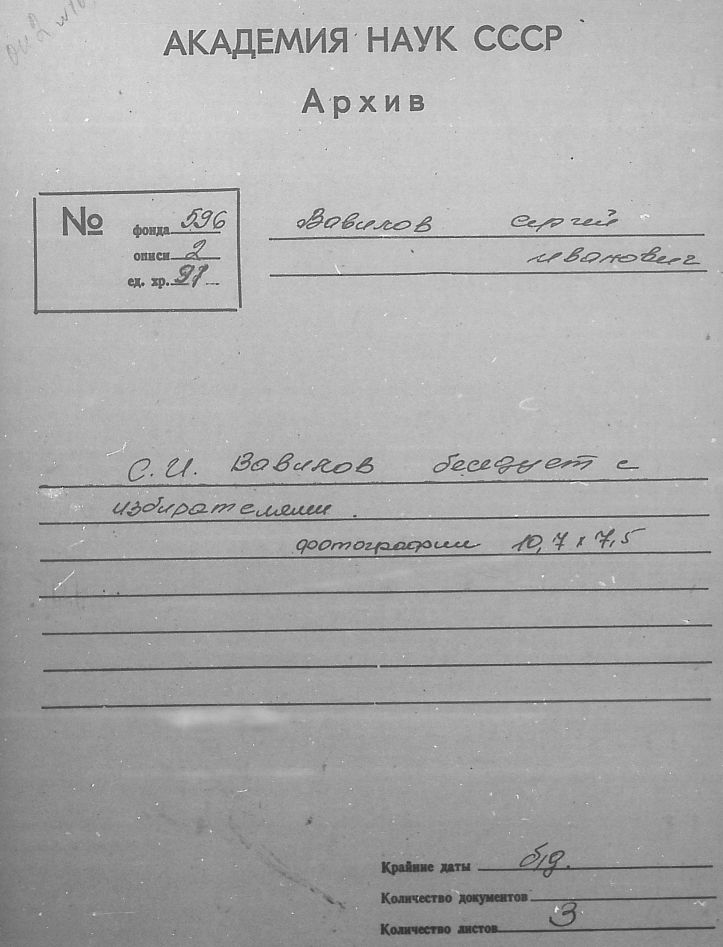 АКАДЕМИЯ НАУК СССР
Архив
№
фонда 596
описи 2
ед. хр. 97
Вавилов Сергей
Иванович
С.И. Вавилов беседует с
избирателями.
фотографии 10,7 х 7,5
Крайние даты б/д.
Количество документов
Количество листов 3